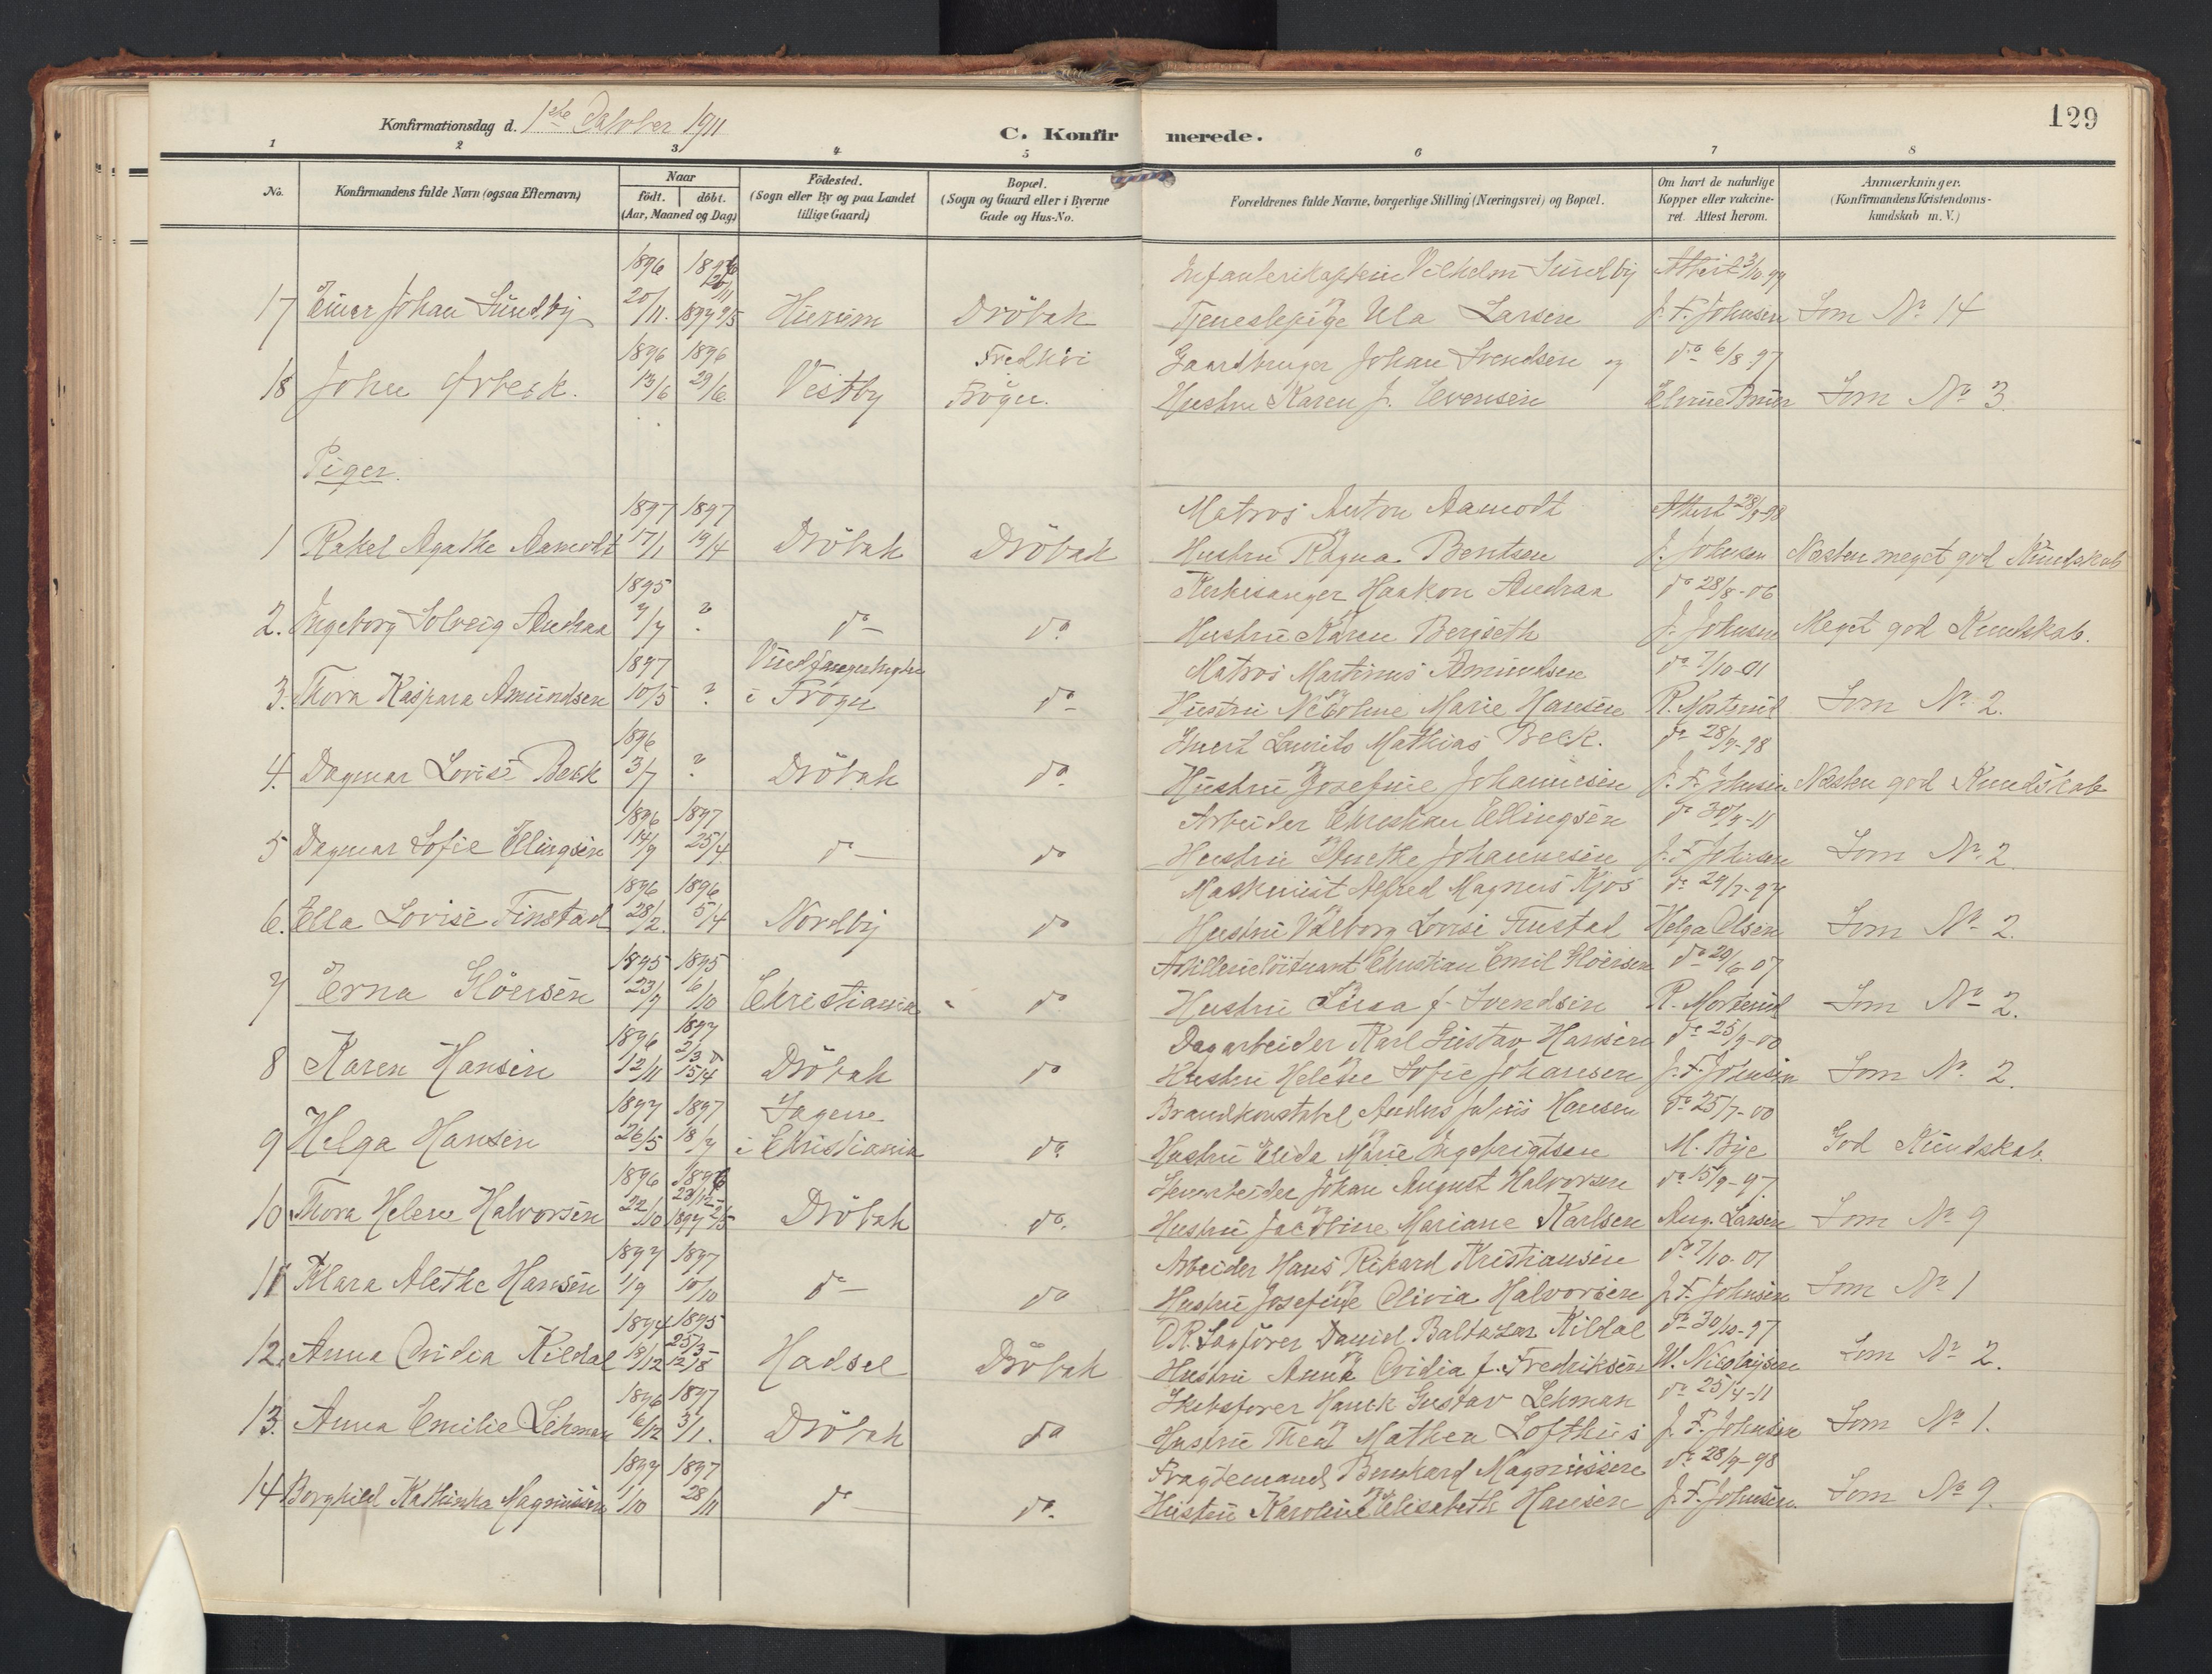 129
Konfirmationsdag d. 1ste Oktober 1911
C. Konfirmerede.
1 2 3 4 5 6 7 8
No. Konfirmandens fulde Navn (ogsaa Efternavn) Naar født. døbt. (Aar, Maaned og Dag) Födested. (Sogn eller By og paa Landet tillige Gaard) Bopæl. (Sogn og Gaard eller i Byerne Gade og Hus-No. Forældrenes fulde Navne, borgerlige Stilling (Næringsvei) og Bopæl. Om havt de naturlige Kopper eller vakcineret. Attest herom. Anmærkninger. (Konfirmandens Kristendomskundskab m. V.)
1896 1896 Infanterikaptein Vilhelm Sundby Attest 3/10 99
17 Einar Johan Sundby 20/11. 26/11 1897 9/5 Hurum Dröbak Tjenestepige Ula Larsen J. F. Johnsen Som No 14
1896 1896 Gaardbruger Johan Svendsen og do 6/8 97
18 John Ørbeck. 13/6 29/6 Vestby Frogn. Hustru Karen J. Evensen Som No 3.
Piger.
1897 1897 Matros Anton Aamodt Attest 28/9-98
1 Rakel Agathe Aamodt 17/1 19/4 Dröbak Dröbak Hustru Ragna Bentsen J. Johnsen Næsten meget god Kundskab
1895 Kirkesanger Haakon Andraa do 28/8-06
2. Ingeborg Solveig Andraa 7/7 ? do do Hustru Karen Bergseth J. Johnsen Meget god Kundskab.
1897 Matros Martinus Amundsen do 7/10-01
3. Thora Kaspara Amundsen 10/5 ? i Frogn do Hustru Nicoline Marie Hansen R. Morterud Som No 2.
1896 Lauritz Mathias Beck. do 28/9-98
4. Dagmar Lovise Beck 3/7 ? Dröbak do Hustru Josefine Johannesen J. F. Johnsen Næsten god Kundskab
1896 1897 Arbeider Christian Ellingsen do 30/9-11
5 Dagmar Sofie Ellingsen 14/9 25/4 do do Hustru Anethe Johannesen J. F. Johnsen Som No 2
1896 1896 Maskinist Alfred Magnus Kjos do 24/7-97
6. Ella Lovise Finstad 28/2. 5/4 Nordby do Hustru Valborg Lovise Finstad Helga Olsen Som No 2.
1895 1895 Christian Emil Gløersen do 29/6 07
7 Erna Gløersen 23/9 6/10 Christiania do Hustru f. Svendsen R. Morterud Som No 2.
1896 1897 Dagarbeider Karl Gustav Hansen do 25/9-00
8 Karen Hansen 12/11 2/3 15/4 Dröbak do Hustru Helene Sofie Johansen J. F. Johnsen Som No 2.
1897 1897 Sagene Brandkonstabel Anders Julius Hansen do 25/7-00
9 Helga Hansen 26/5 18/7 i Christiania do. Hustru Elida Marie Ingebrigtsen M. Bye God Kundskab.
1896 1896 Johan August Halvorsen do 15/9-97.
10 Thora Helene Halvorsen 22/10 28/12 1897 2/5 Dröbak do. Hustru Jacobine Mariane Karlsen Aug. Larsen Som No 9
1897 1897 Arbeider Hans Rikard Kristiansen do 7/10-01
11 Klara Alethe Hansen 1/9 10/10 do do Hustru Josefine Olivia Halvorsen J. F. Johnsen Som No 1
1894 1895 O.R. Sagfører Daniel Baltazar Kildal do 30/10-97
12. Anna Ovidia Kildal 18/12 25/3 12/8 Hadsel Dröbak Hustru Anna Ovidia f. Fredriksen W. Nicolaysen Som No 2.
1896 1897 Skibsfører Gustav Lehman do 25/4-11
13. Anna Emilie Lehman 16/12 3/1. Dröbak do Hustru Thea Mathea Lofthus J. F. Johnsen Som No 1.
1897 1897 Fragtemand Bernhard Magnussen do 28/9-98
14 Borghild Kathinka Magnussen 1/10 28/11 do do. Hustru Karoline Elisabeth Hansen J. F. Johnsen Som No 9.